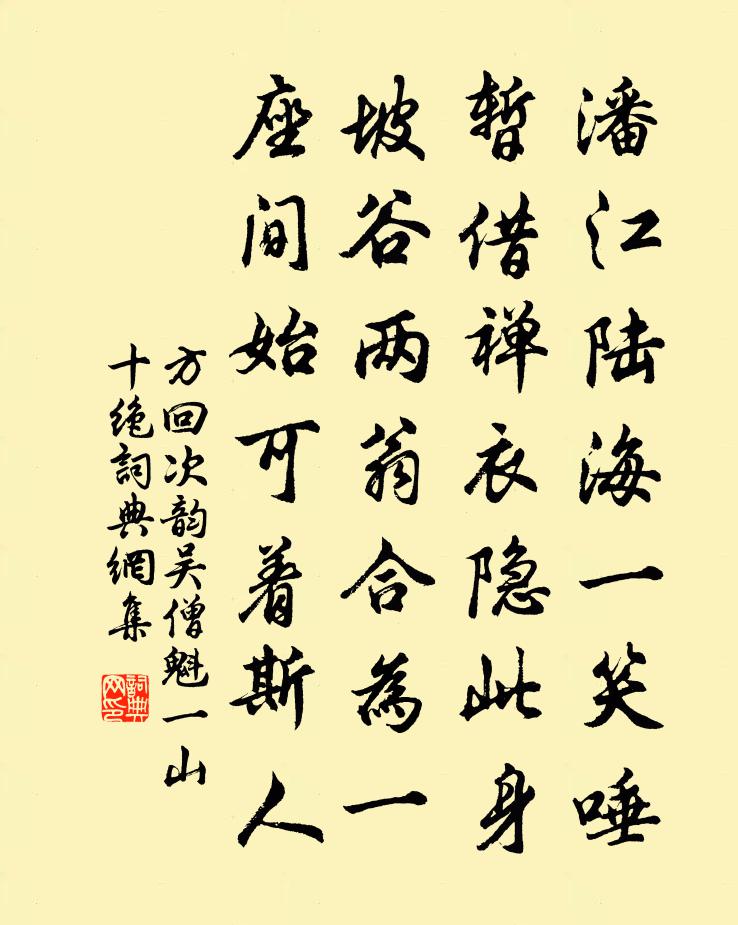 潘江陆海一笑唾
暂借禅衣隐此身
坡谷两翁合為一
座间始可着斯人
方回次韵吴僧魁一山
十绝詞典網集
詞典
网印